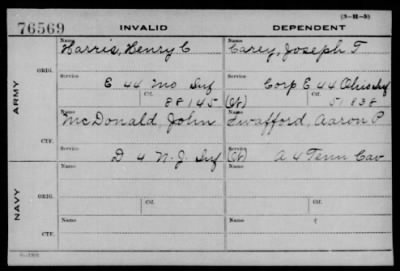 (3-H-3)
76569 INVALID DEPENDENT
Name Name
Harris, Henry C Carey, Joseph T
ORIG.
Service Service
E 44 Mo Inf Corp E 44 Ohio Inf
Ctf. Ctf.
88145 (Ct) 51838
ARMY
Name Name
McDonald, John Swafford, Aaron P
CTF.
Service Service
D 4 N.J. Inf (Ct) A 4 Tenn Cav
Name Name
ORIG.
Service Service
Ctf. Ctf.
NAVY
Name Name
CTF.
Service Service